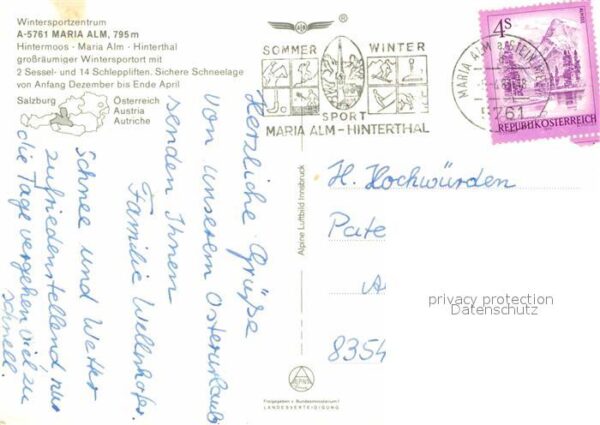 Wintersportzentrum
A-5761 MARIA ALM, 795 m
Hintermoos - Maria Alm - Hinterthal
großräumiger Wintersportort mit
2 Sessel- und 14 Schleppliften. Sichere Schneelage
von Anfang Dezember bis Ende April
Salzburg
Österreich
Austria
Autriche
Herzliche Grüße
von unserem Osterurlaub
senden Ihnen
Familie Wellnhofer.
Schnee und Wetter
zufriedenstellend nur
die Tage vergehen viel zu
schnell.
Alpine Luftbild Innsbruck
ALPINE
Freigegeben v. Bundesministerium f.
LANDESVERTEIDIGUNG
SOMMER WINTER
SPORT
MARIA ALM - HINTERTHAL
MARIA ALM a. STEIN
5761
4S
REPUBLIK ÖSTERREICH
H. Hochwürden
Pate
A
8354
privacy protection
Datenschutz